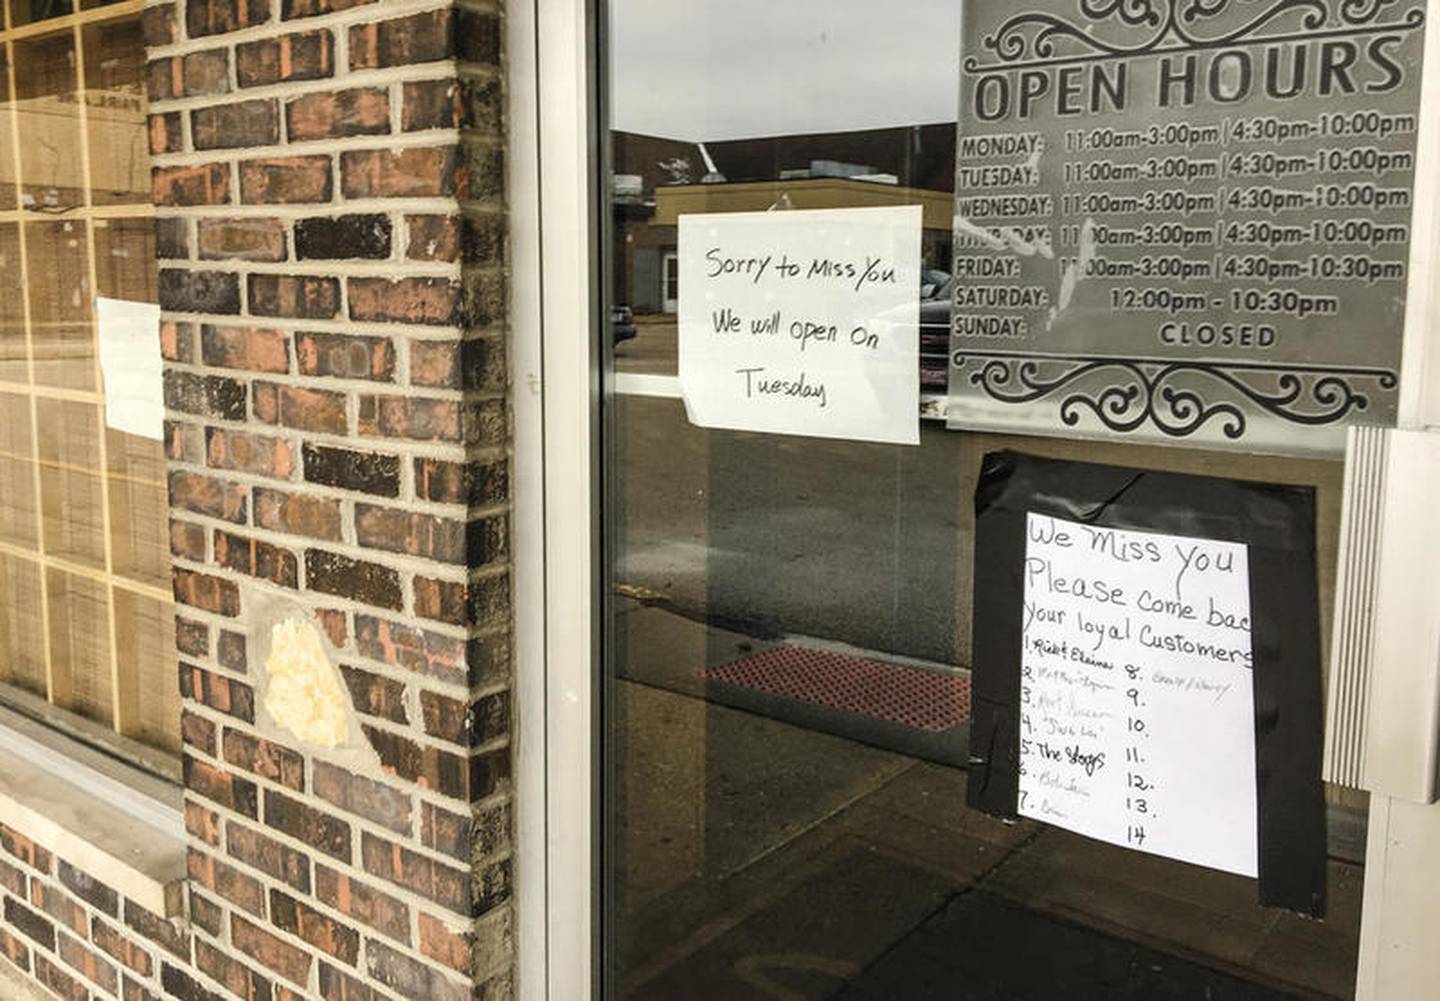 OPEN HOURS
MONDAY: 11:00am-3:00pm | 4:30pm-10:00pm
TUESDAY: 11:00am-3:00pm | 4:30pm-10:00pm
WEDNESDAY: 11:00am-3:00pm | 4:30pm-10:00pm
THURSDAY: 11:00am-3:00pm | 4:30pm-10:00pm
FRIDAY: 11:00am-3:00pm | 4:30pm-10:30pm
SATURDAY: 12:00pm - 10:30pm
SUNDAY: CLOSED
Sorry to Miss You
We will open on
Tuesday
We Miss you
Please come bac
your loyal Customers
1. Rick & Elaine
2.
3.
4.
5. The Stogs
6.
7.
8.
9.
10.
11.
12.
13.
14